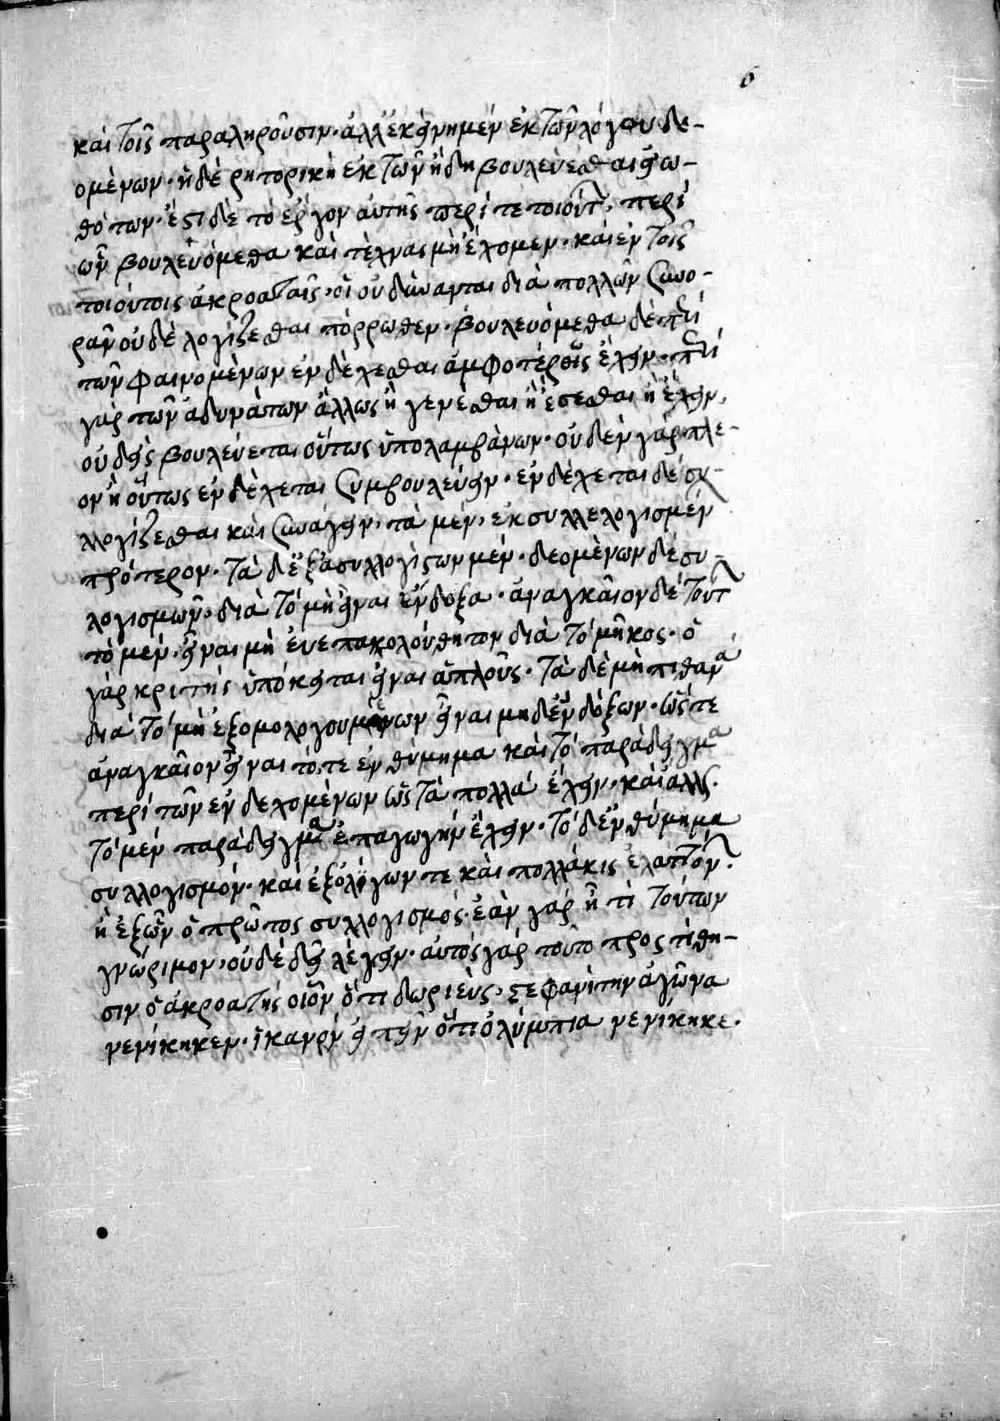 6
καὶ τοῖς παραληροῦσιν· ἀλλ' ἐκείνη μὲν ἐκ τῶν λόγου δε-
ομένων· ἡ δὲ ρητορικὴ ἐκ τῶν ἤδη βουλεύεσθαι εἰω-
θότων· ἔστι δὲ τὸ ἔργον αὐτῆς περί τε τοιούτων, περὶ
ὧν βουλευόμεθα καὶ τέχνας μὴ ἔχομεν· καὶ ἐν τοῖς
τοιούτοις ἀκροαταῖς, οἳ οὐ δύνανται διὰ πολλῶν συνο-
ρᾶν οὐδὲ λογίζεσθαι πόρρωθεν· βουλευόμεθα δὲ περὶ
τῶν φαινομένων ἐνδέχεσθαι ἀμφοτέρως ἔχειν· περὶ
γὰρ τῶν ἀδυνάτων ἄλλως ἢ γενέσθαι ἢ ἔσεσθαι ἢ ἔχειν,
οὐδεὶς βουλεύεται οὕτως ὑπολαμβάνων· οὐδὲν γὰρ πλέ-
ον ἢ οὕτως ἐνδέχεται συμβουλεύειν· ἐνδέχεται δὲ συλ-
λογίζεσθαι καὶ συνάγειν, τὰ μὲν, ἐκ συλλελογισμένων
πρότερον· τὰ δ' ἐξ ἀσυλλογίστων μὲν· δεομένων δὲ συ-
λογισμῶν, διὰ τὸ μὴ εἶναι ἔνδοξα· ἀναγκαῖον δὲ τούτων
τὸ μὲν· εἶναι μὴ εὐεπακολούθητον διὰ τὸ μῆκος· ὁ
γὰρ κριτὴς ὑπόκειται εἶναι ἁπλοῦς· τὰ δὲ μὴ πιθανὰ
διὰ τὸ μὴ ἐξομολογουμένων εἶναι μηδ' ἐνδόξων· ὥστε
ἀναγκαῖον εἶναι τό, τε ἐνθύμημα καὶ τὸ παράδειγμα
περὶ τῶν ἐνδεχομένων ὡς τὰ πολλὰ ἔχειν· καὶ ἄλλως·
τὸ μὲν παράδειγμα ἐπαγωγὴν ἔχειν· τὸ δ' ἐνθύμημα
συλλογισμόν· καὶ ἐξ ὀλίγων τε καὶ πολλάκις ἐλαττόνων·
ἢ ἐξ ὧν ὁ πρῶτος συλλογισμός· ἐὰν γὰρ ᾖ τι τούτων
γνώριμον, οὐδὲ δεῖ λέγειν· αὐτὸς γὰρ τοῦτο προστίθη-
σιν ὁ ἀκροατής οἷον ὅτι δωριεύς, στεφανίτην ἀγῶνα
νενίκηκεν· ἱκανὸν εἰπεῖν ὅτι ὀλύμπια νενίκηκε·